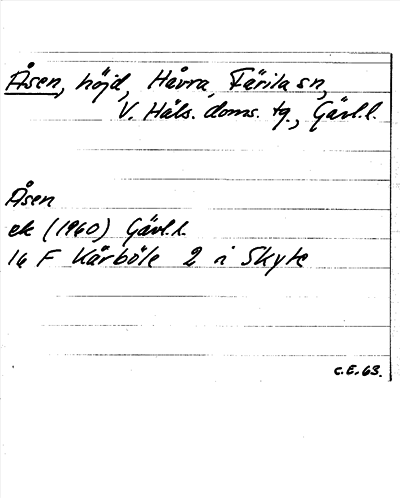 Åsen, höjd, Håvra, Färila sn,
V. Häls. doms. tg., Gävl.l.
Åsen
ek (1960) Gävl.l.
16 F Kårböle 2 i Skyte
C.E.63.